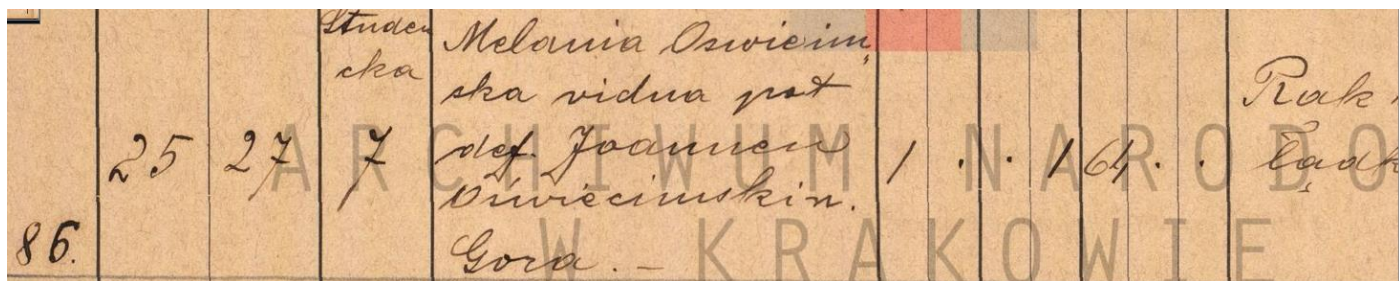 Studen
cka
Melania Oswieцim„
ska vidua post
def. Joannem
Oświecimskin.
Gora. –
86.
25
27
7
1
.
.
1
64
.
.
Rak
żądk
ARCHIWUM NARODO
W KRAKOWIE